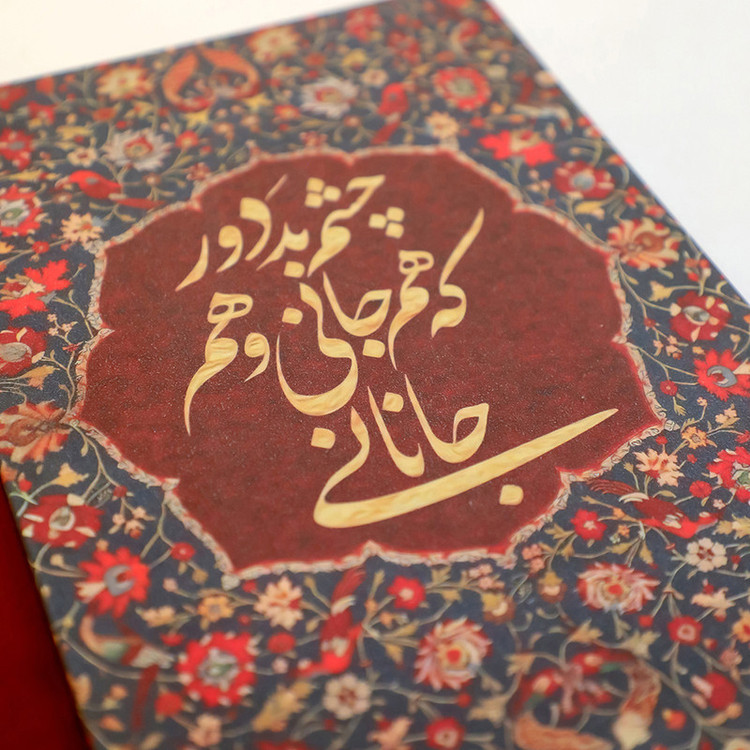 چشم بد دَور
که هم جانی و هم
جانانی